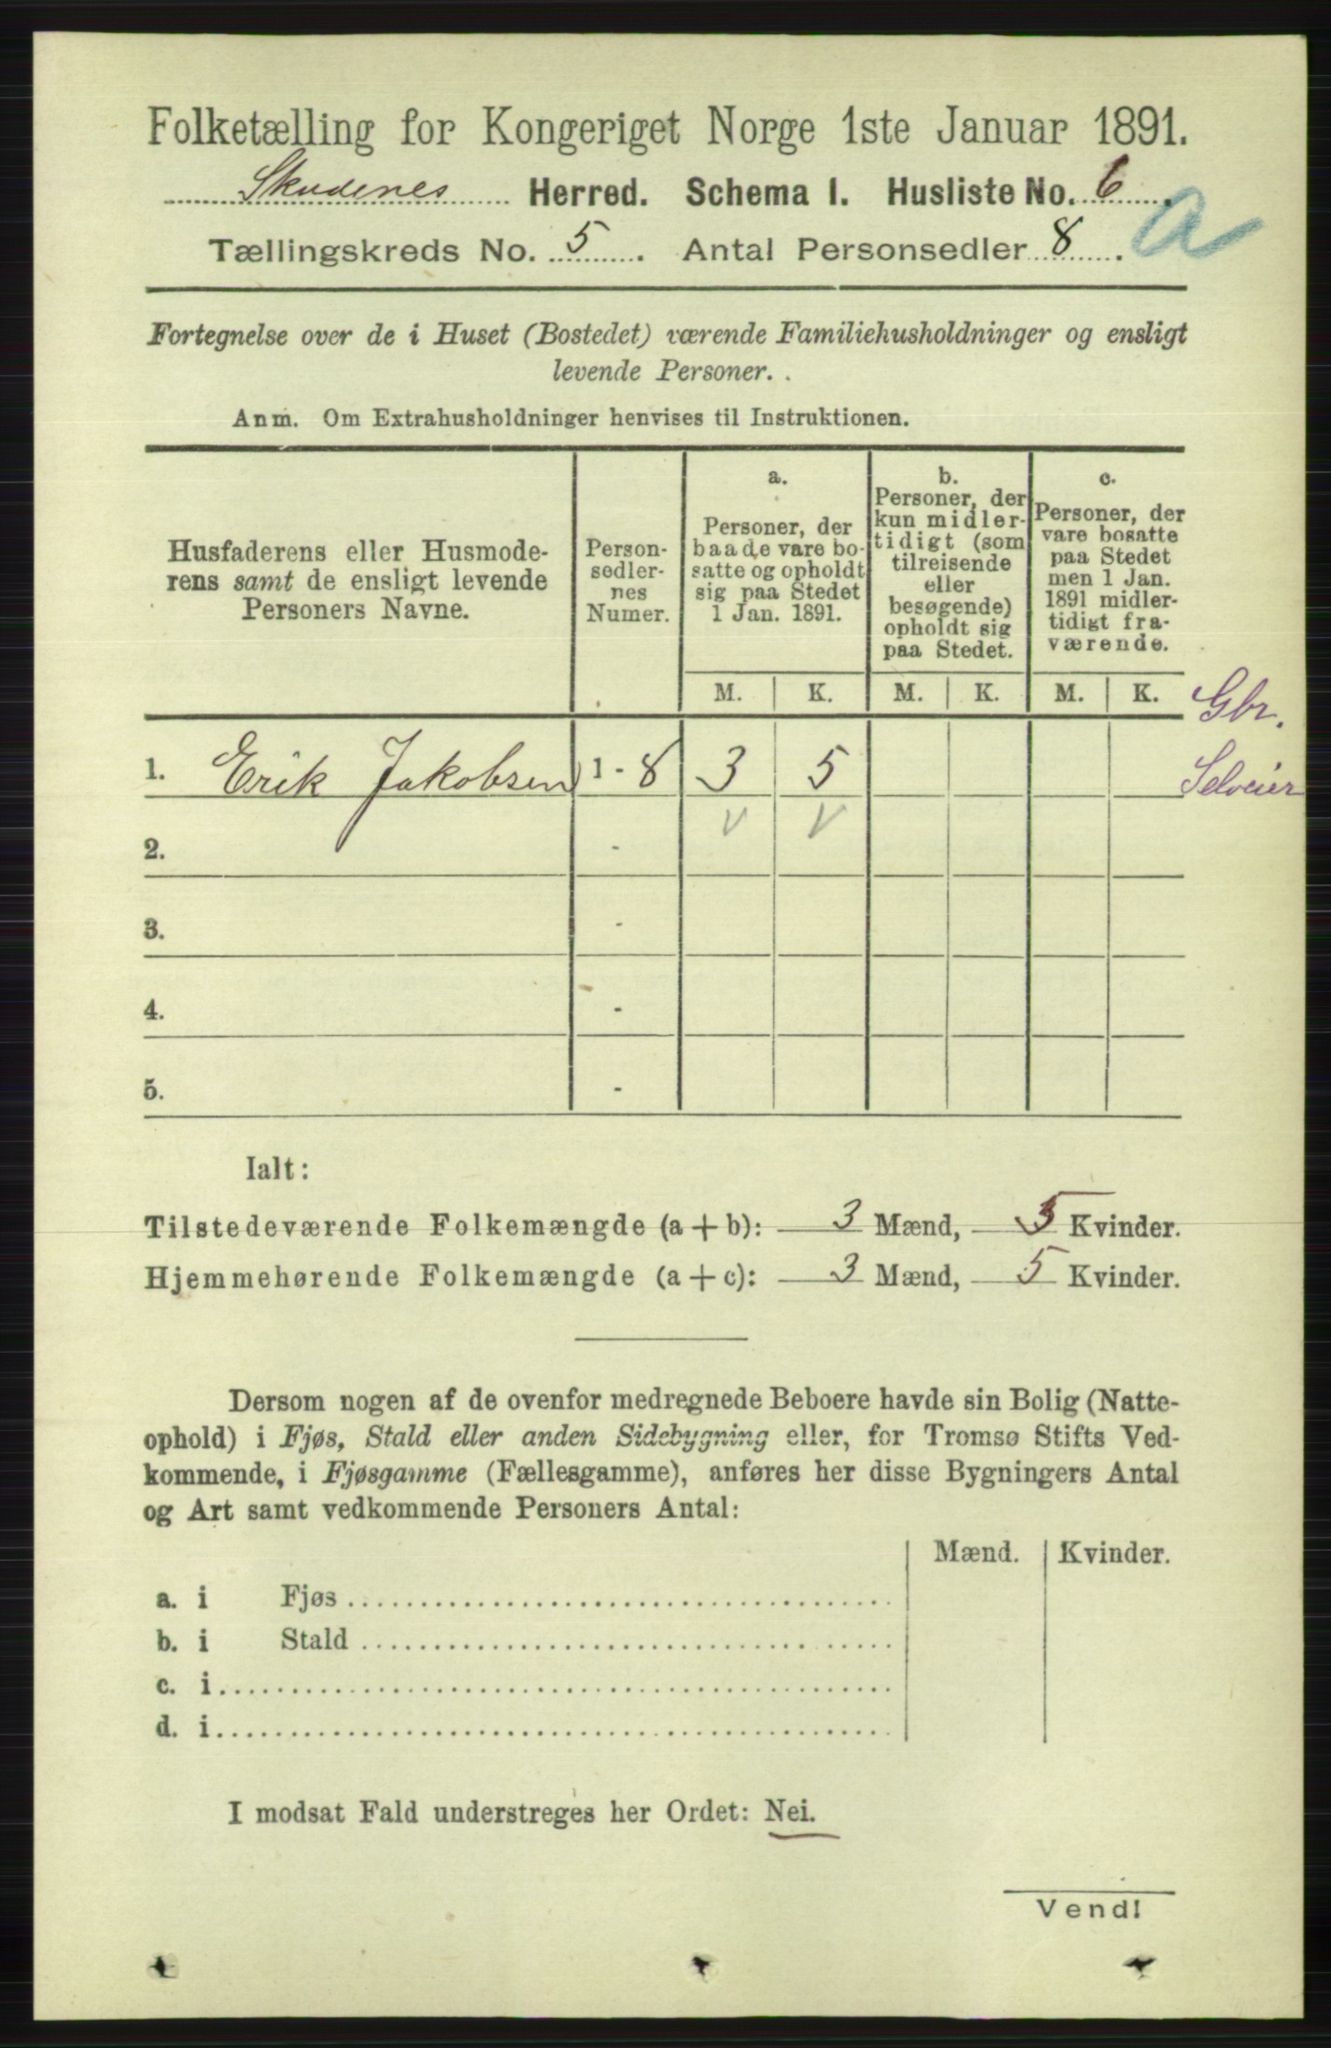 Folketælling for Kongeriget Norge 1ste Januar 1891.
Skudenes Herred. Schema 1. Husliste No. 6
Tællingskreds No. 5. Antal Personsedler 8. a
Fortegnelse over de i Huset (Bostedet) værende Familiehusholdninger og ensligt
levende Personer.
Anm. Om Extrahusholdninger henvises til Instruktionen.
Husfaderens eller Husmode-
rens samt de ensligt levende
Personers Navne.
Person-
sedler-
nes
Numer.
a.
Personer, der
baade vare bo-
satte og opholdt
sig paa Stedet
1 Jan. 1891.
b.
Personer, der
kun midler-
tidigt (som
tilreisende
eller
besøgende)
opholdt sig
paa Stedet.
c.
Personer, der
vare bosatte
paa Stedet
men 1 Jan.
1891 midler-
tidigt fra-
værende.
M. K. M. K. M. K.
Gbr.
1. Erik Jakobsen 1 - 8 3 5 Selveier
2. -
3. -
4. -
5. -
Ialt:
Tilstedeværende Folkemængde (a + b): 3 Mænd, 5 Kvinder.
Hjemmehørende Folkemængde (a + c): 3 Mænd, 5 Kvinder.
Dersom nogen af de ovenfor medregnede Beboere havde sin Bolig (Natte-
ophold) i Fjøs, Stald eller anden Sidebygning eller, for Tromsø Stifts Ved-
kommende, i Fjøsgamme (Fællesgamme), anføres her disse Bygningers Antal
og Art samt vedkommende Personers Antal:
Mænd. Kvinder.
a. i Fjøs
b. i Stald
c. i
d. i
I modsat Fald understreges her Ordet: Nei.
Vend!